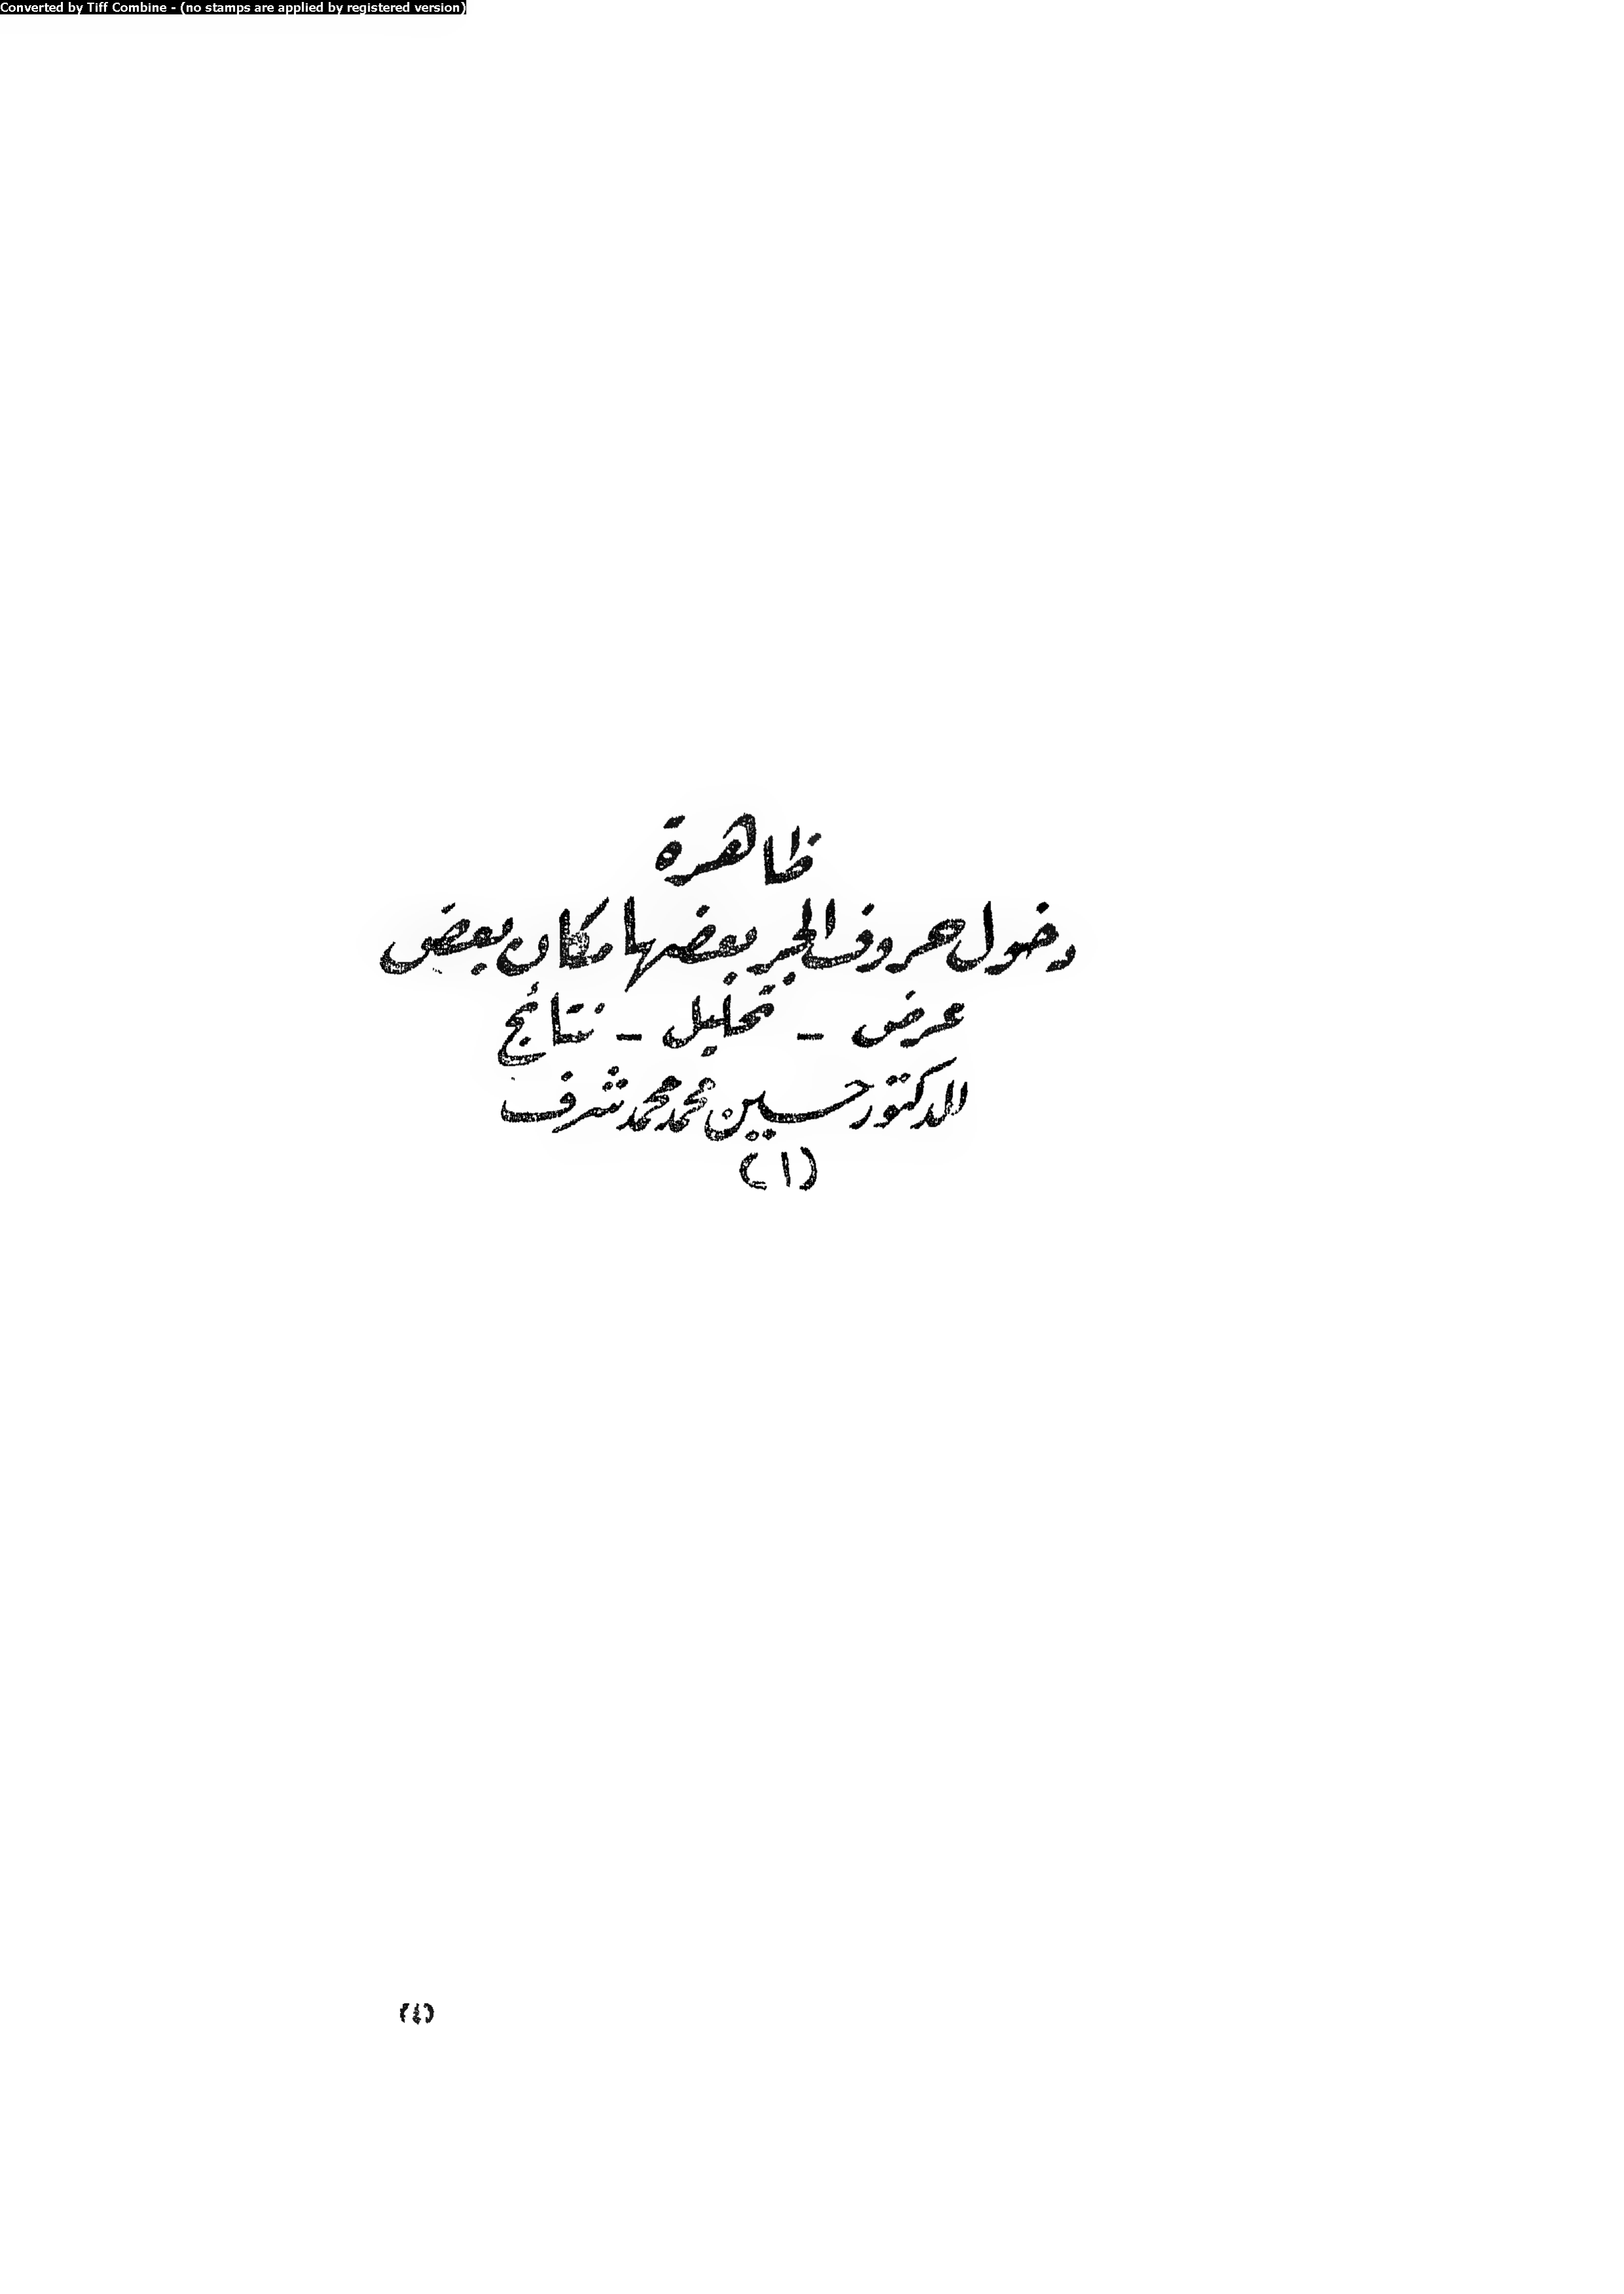 Converted by Tiff Combine - (no stamps are applied by registered version)
ظاهرة
دخول حروف الجر بعضها مكان بعض
عرض - تحليل - نتائج
للدكتور حسين محمد محمد شرف
(١)